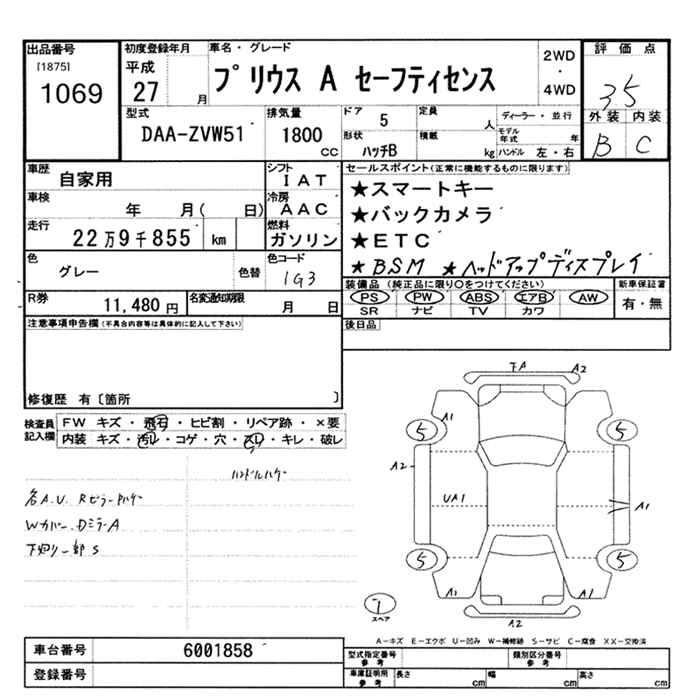 出品番号
[1875]
1069
初度登録年月
平成
27 月
車名・グレード
プリウス A セーフティセンス
2WD
・
4WD
評価点
35
外装 内装
B C
型式
DAA-ZVW51
排気量
1800
cc
ドア
5
形状
ハッチB
定員
人
積載
kg
ディーラー・並行
モデル年式 年
ハンドル 左・右
車歴
自家用
車検
年 月( 日)
走行
22万9千855 km
シフト
IAT
冷房
AAC
燃料
ガソリン
色
グレー
色替
色コード
1G3
R券
11,480 円
名変通知期限
月 日
セールスポイント(正常に機能するものに限ります)
★スマートキー
★バックカメラ
★ETC
★BSM ★ヘッドアップディスプレイ
装備品(純正品に限り○をつけてください)
PS PW ABS エアB AW
SR ナビ TV カワ
新車保証書
有・無
後日品
注意事項申告欄(不具合内容等は具体的に記入して下さい)
修復歴 有〔箇所 〕
検査員
記入欄
FW キズ・飛石・ヒビ割・リペア跡・×要
内装 キズ・汚レ・コゲ・穴・スレ・キレ・破レ
ハンドルハゲ
各A.U.
Wカバー.DミラーA
下廻り一部S
A2
A1
5
5
A2
UA1
A1
5
5
A1
A1
A2
7
スペア
A-キズ E-エクボ U-凹み W-補修跡 S-サビ C-腐食 XX-交換済
車台番号
6001858
登録番号
型式指定番号
参考
類別区分番号
参考
車庫証明用
参考
長さ cm
幅 cm
高さ cm